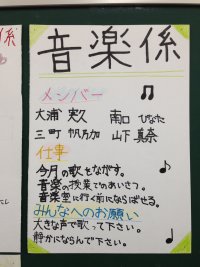 音楽係
メンバー
大浦実久 南口ひなた
三町帆乃加 山下真奈
仕事
今月の歌をながす。
音楽の授業でのあいさつ。
音楽室に行く前にならばせる。
みんなへのお願い
大きな声で歌って下さい。
静かにならんで下さい。